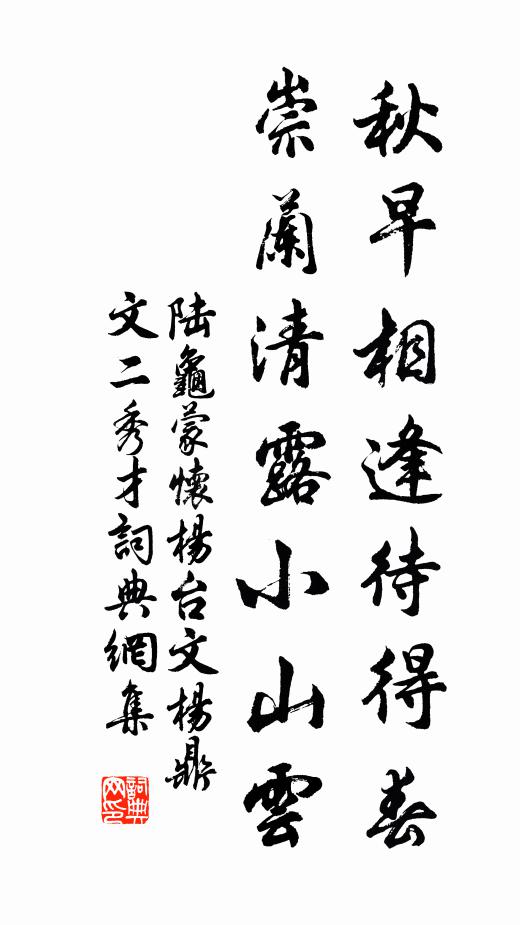 秋早相逢待得春
崇蘭清露小山雲
陸龜蒙懷楊台文楊鼎
文二秀才詞典網集
詞典網印